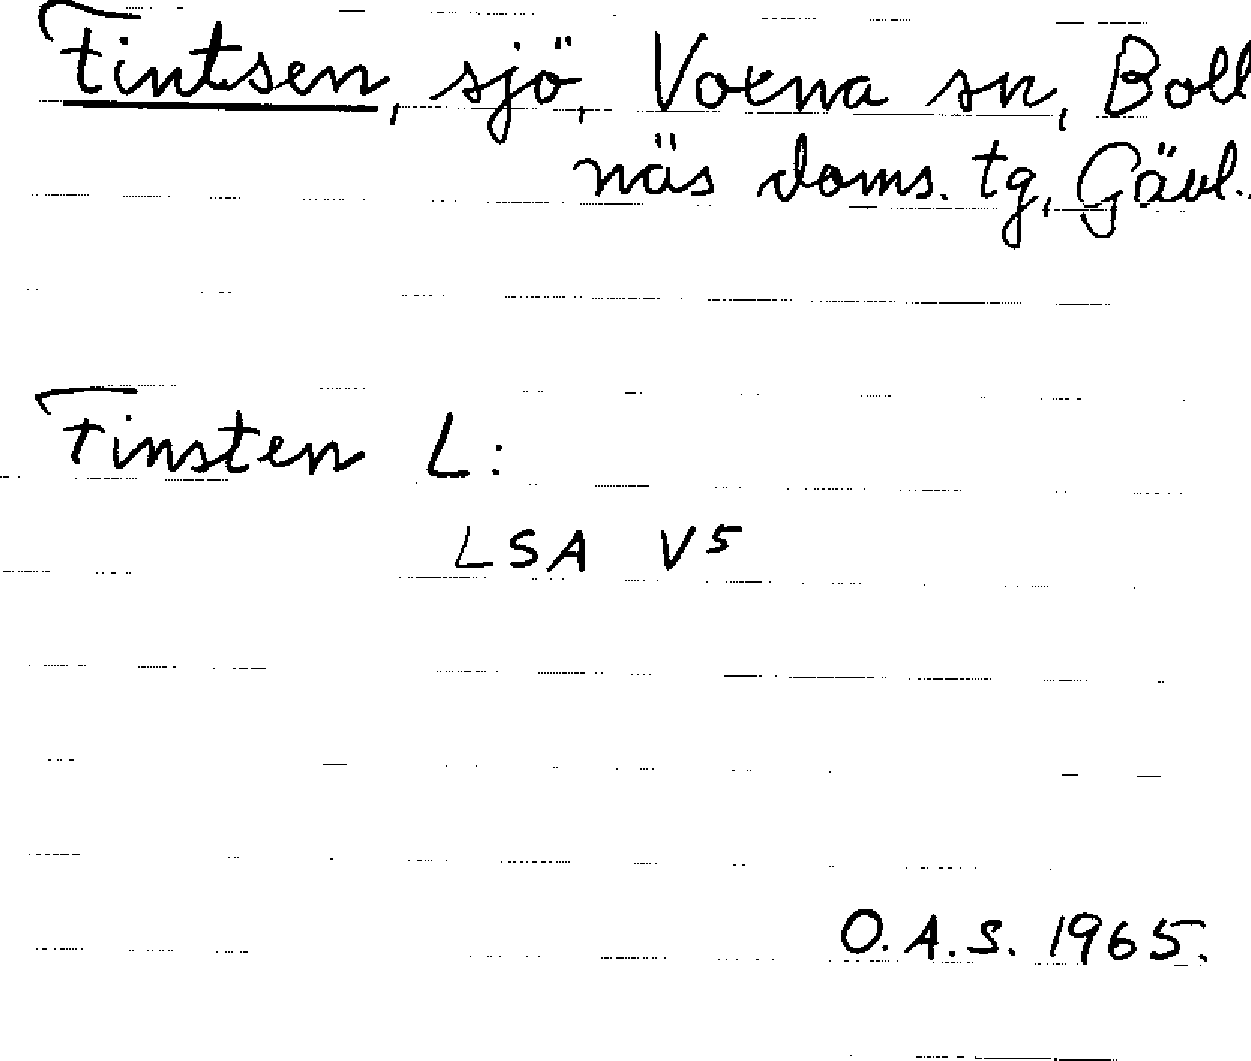 Fintsen, sjö, Voxna sn, Boll
näs doms. tg, Gävl.
Finsten L:
LSA V5
O.A.S. 1965.